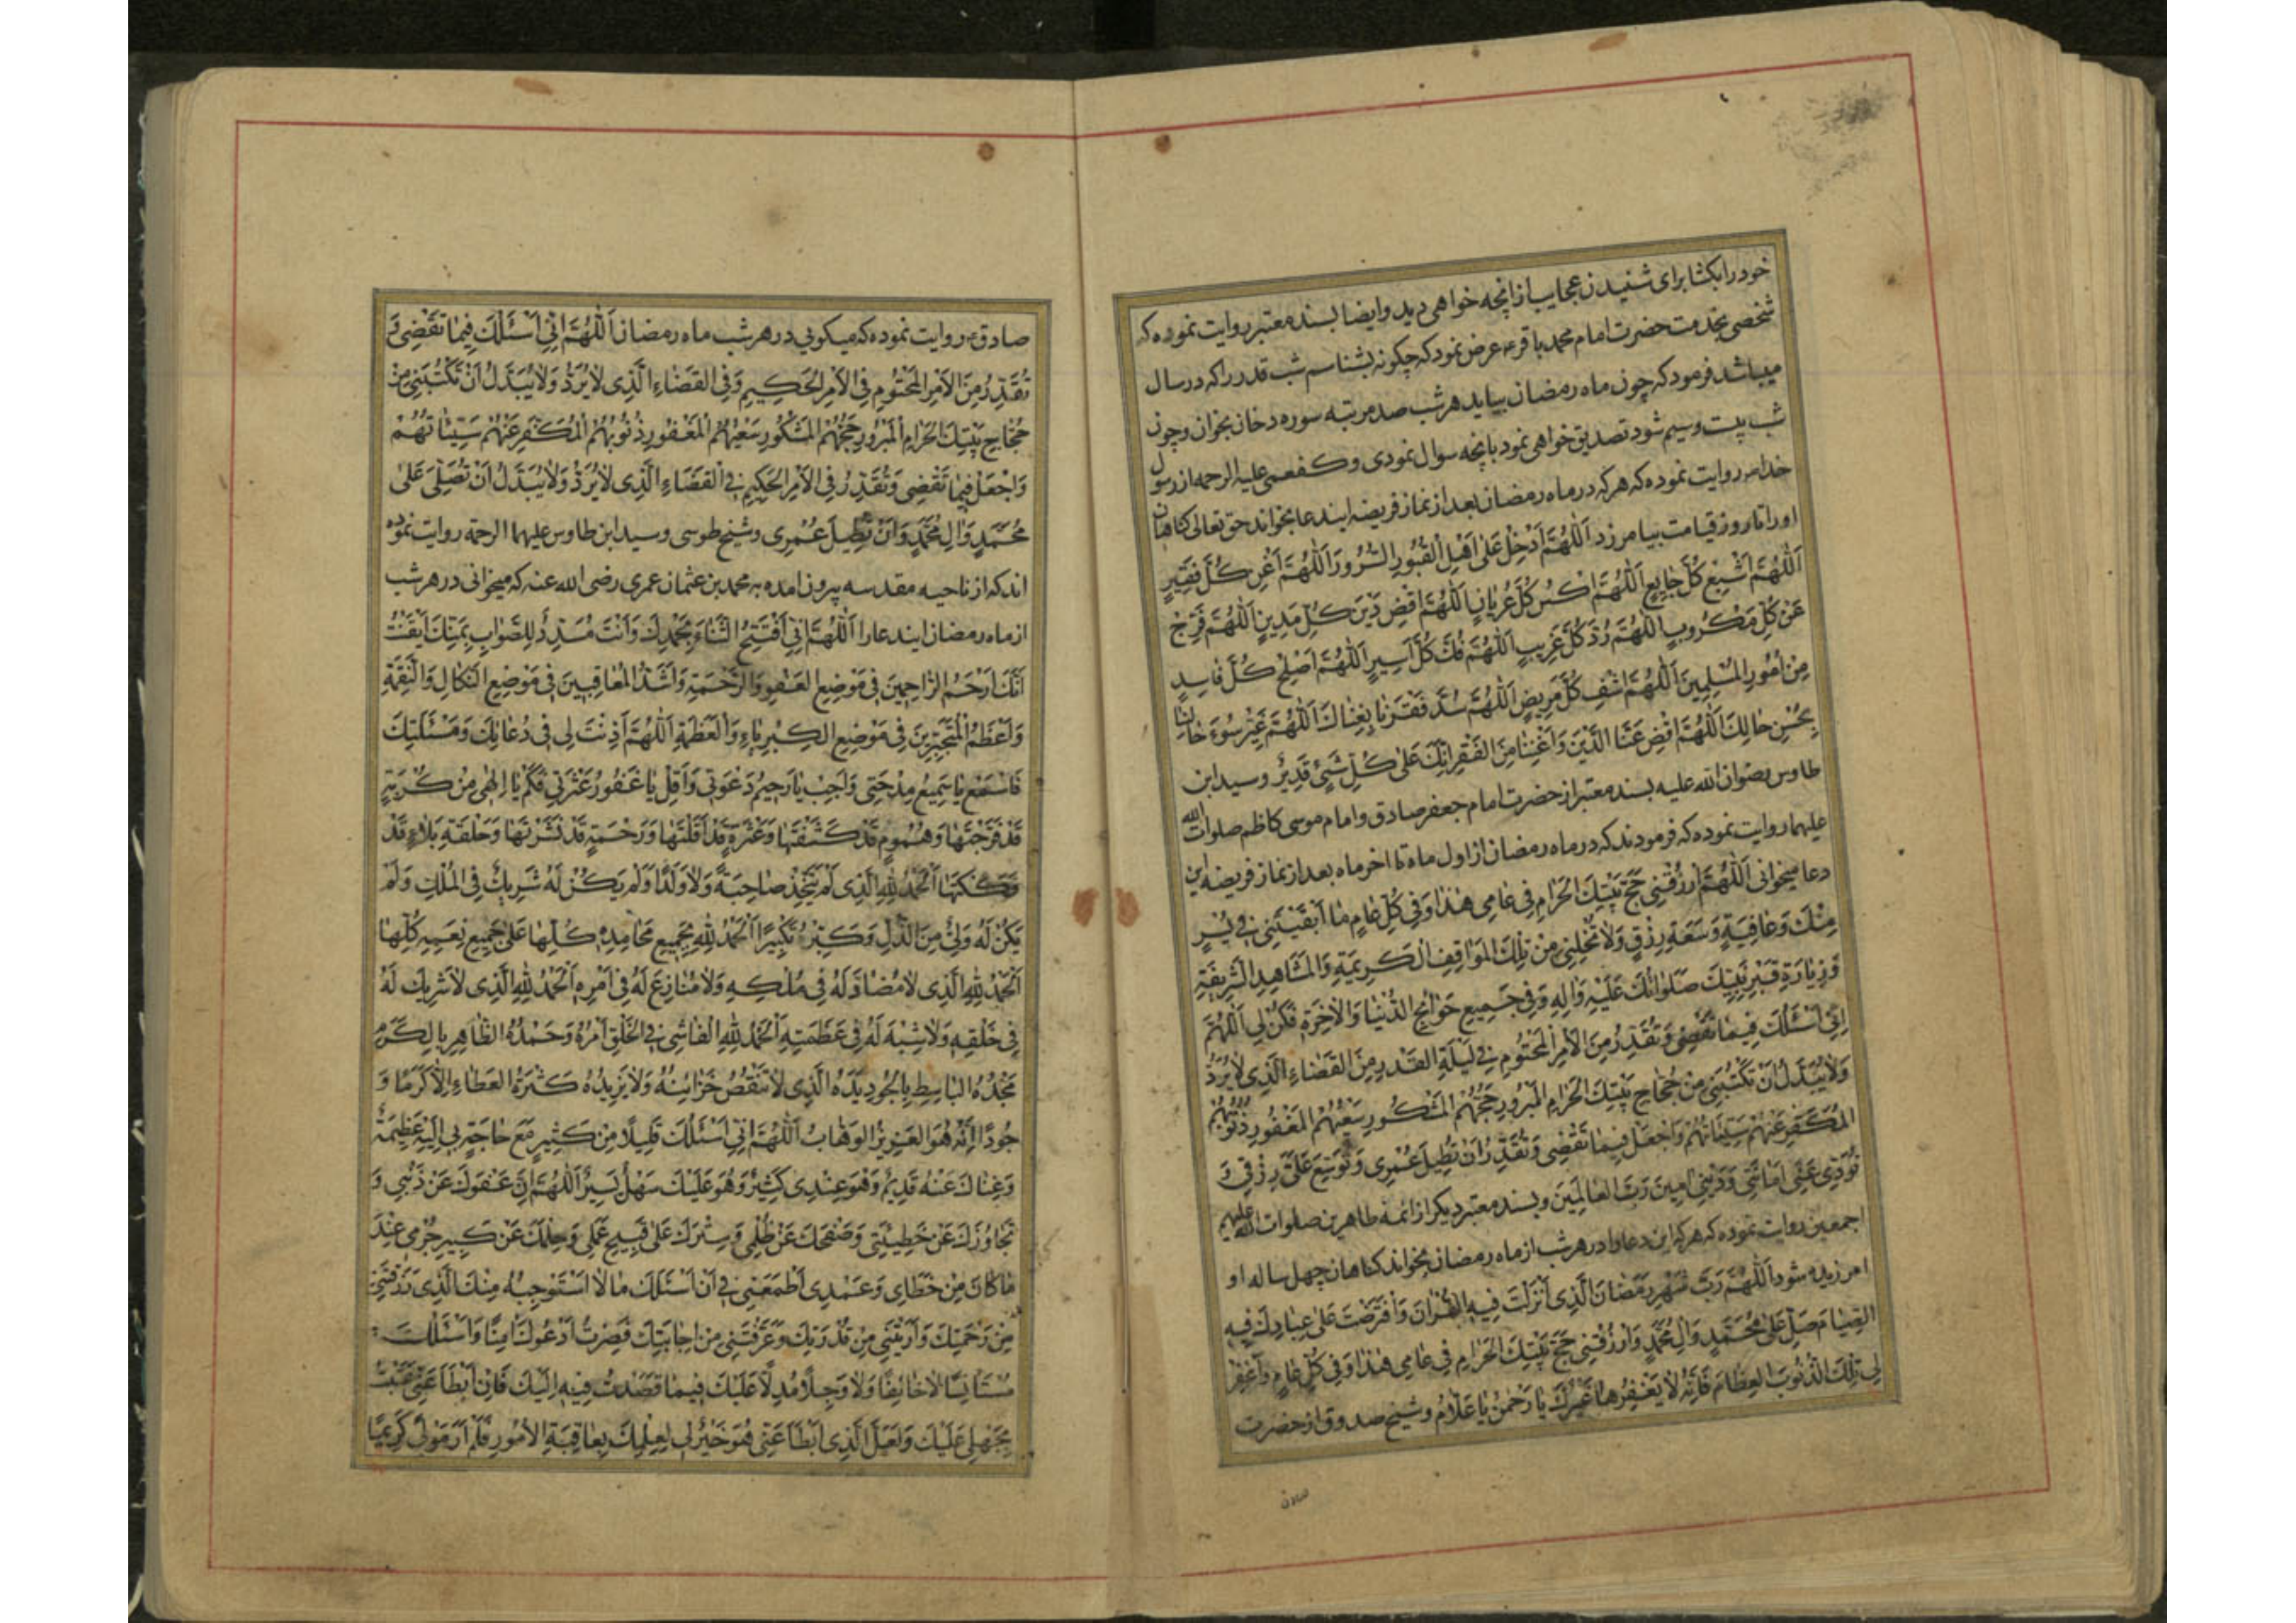 خود را بکشا برای شنیدن عجایب از انچه خواهی دید و ایضا بسند معتبر روایت نموده که
شخصی بخدمت حضرت امام محمد باقر ع عرض نمود که چکونه بشناسم شب قدر را که در سال
میباشد فرمود که چون ماه رمضان بیاید هر شب صد مرتبه سوره دخان بخوان و چون
شب بیست و سیم شود تصدیق خواهی نمود بانچه سوال نمودی و کفعمی علیه الرحمه از رسول
خدا ص روایت نموده که هر که در ماه رمضان بعد از نماز فریضه ایندعا بخواند حق تعالی کناهان
او را تا روز قیامت بیامرزد اَللّٰهُمَّ اَدْخِلْ عَلٰی اَهْلِ الْقُبُورِ السُّرُورَ اَللّٰهُمَّ اَغْنِ كُلَّ فَقٖیرٍ
اَللّٰهُمَّ اَشْبِعْ كُلَّ جٰایِعٍ اَللّٰهُمَّ اكْسُ كُلَّ عُرْیٰانٍ اَللّٰهُمَّ اقْضِ دَیْنَ كُلِّ مَدِینٍ اَللّٰهُمَّ فَرِّجْ
عَنْ كُلِّ مَكْرُوبٍ اَللّٰهُمَّ رُدَّ كُلَّ غَرِیبٍ اَللّٰهُمَّ فُكَّ كُلَّ اَسِیرٍ اَللّٰهُمَّ اَصْلِحْ كُلَّ فٰاسِدٍ
مِنْ اُمُورِ الْمُسْلِمِینَ اَللّٰهُمَّ اشْفِ كُلَّ مَرِیضٍ اَللّٰهُمَّ سُدَّ فَقْرَنٰا بِغِنٰاكَ اَللّٰهُمَّ غَیِّرْ سُوءَ حٰالِنٰا
بِحُسْنِ حٰالِكَ اَللّٰهُمَّ اقْضِ عَنَّا الدَّیْنَ وَ اَغْنِنٰا مِنَ الْفَقْرِ اِنَّكَ عَلٰی كُلِّ شَیْءٍ قَدِیرٌ و سید ابن
طاوس رضوان الله علیه بسند معتبر از حضرت امام جعفر صادق و امام موسی کاظم صلوات الله
علیهما روایت نموده که فرمودند که در ماه رمضان از اول ماه تا اخر ماه بعد از نماز فریضه این
دعا میخوانی اَللّٰهُمَّ ارْزُقْنِی حَجَّ بَیْتِكَ الْحَرٰامِ فِی عٰامِی هٰذٰا وَ فِی كُلِّ عٰامٍ مٰا اَبْقَیْتَنِی فِی یُسْرٍ
مِنْكَ وَ عٰافِیَةٍ وَ سَعَةِ رِزْقٍ وَ لٰا تُخْلِنِی مِنْ تِلْكَ الْمَوٰاقِفِ الْكَرِیمَةِ وَ الْمَشٰاهِدِ الشَّرِیفَةِ
وَ زِیٰارَةِ قَبْرِ نَبِیِّكَ صَلَوٰاتُكَ عَلَیْهِ وَ اٰلِهِ وَ فِی جَمِیعِ حَوٰائِجِ الدُّنْیٰا وَ الْاٰخِرَةِ فَكُنْ لِی اَللّٰهُمَّ
اِنِّی اَسْئَلُكَ فِیمٰا تَقْضِی وَ تُقَدِّرُ مِنَ الْاَمْرِ الْمَحْتُومِ فِی لَیْلَةِ الْقَدْرِ مِنَ الْقَضٰاءِ الَّذِی لٰا یُرَدُّ
وَ لٰا یُبَدَّلُ اَنْ تَكْتُبَنِی مِنْ حُجّٰاجِ بَیْتِكَ الْحَرٰامِ الْمَبْرُورِ حَجُّهُمْ الْمَشْكُورِ سَعْیُهُمْ الْمَغْفُورِ ذُنُوبُهُمْ
الْمُكَفَّرِ عَنْهُمْ سَیِّئٰاتُهُمْ وَ اجْعَلْ فِیمٰا تَقْضِی وَ تُقَدِّرُ اَنْ تُطِیلَ عُمْرِی وَ تُوَسِّعَ عَلَیَّ رِزْقِی وَ
تُؤَدِّیَ عَنِّی اَمٰانَتِی وَ دَیْنِی اٰمِینَ رَبَّ الْعٰالَمِینَ و بسند معتبر دیکر از ائمه طاهرین صلوات الله علیهم
اجمعین روایت نموده که هر که این دعا را در هر شب از ماه رمضان بخواند کناهان چهل ساله او
امرزیده شود اَللّٰهُمَّ رَبَّ شَهْرِ رَمَضٰانَ الَّذِی اَنْزَلْتَ فِیهِ الْقُرْاٰنَ وَ افْتَرَضْتَ عَلٰی عِبٰادِكَ فِیهِ
الصِّیٰامَ صَلِّ عَلٰی مُحَمَّدٍ وَ اٰلِ مُحَمَّدٍ وَ ارْزُقْنِی حَجَّ بَیْتِكَ الْحَرٰامِ فِی عٰامِی هٰذٰا وَ فِی كُلِّ عٰامٍ وَ اغْفِرْ
لِی تِلْكَ الذُّنُوبَ الْعِظٰامَ فَاِنَّهُ لٰا یَغْفِرُهٰا غَیْرُكَ یٰا رَحْمٰنُ یٰا عَلّٰامُ و شیخ صدوق از حضرت
صادق
صادق ع روایت نموده که میکویی در هر شب ماه رمضان اَللّٰهُمَّ اِنِّی اَسْئَلُكَ فِیمٰا تَقْضِی وَ
تُقَدِّرُ مِنَ الْاَمْرِ الْمَحْتُومِ فِی الْاَمْرِ الْحَكِیمِ وَ فِی الْقَضٰاءِ الَّذِی لٰا یُرَدُّ وَ لٰا یُبَدَّلُ اَنْ تَكْتُبَنِی مِنْ
حُجّٰاجِ بَیْتِكَ الْحَرٰامِ الْمَبْرُورِ حَجُّهُمْ الْمَشْكُورِ سَعْیُهُمْ الْمَغْفُورِ ذُنُوبُهُمْ الْمُكَفَّرِ عَنْهُمْ سَیِّئٰاتُهُمْ
وَ اجْعَلْ فِیمٰا تَقْضِی وَ تُقَدِّرُ فِی الْاَمْرِ الْحَكِیمِ فِی الْقَضٰاءِ الَّذِی لٰا یُرَدُّ وَ لٰا یُبَدَّلُ اَنْ تُصَلِّیَ عَلٰی
مُحَمَّدٍ وَ اٰلِ مُحَمَّدٍ وَ اَنْ تُطِیلَ عُمْرِی و شیخ طوسی و سید ابن طاوس علیهما الرحمه روایت نموده
اند که از ناحیه مقدسه بیرون امده به محمد بن عثمان عمری رضی الله عنه که میخوانی در هر شب
از ماه رمضان ایندعا را اَللّٰهُمَّ اِنِّی اَفْتَتِحُ الثَّنٰاءَ بِحَمْدِكَ وَ اَنْتَ مُسَدِّدٌ لِلصَّوٰابِ بِمَنِّكَ اَیْقَنْتُ
اَنَّكَ اَرْحَمُ الرّٰاحِمِینَ فِی مَوْضِعِ الْعَفْوِ وَ الرَّحْمَةِ وَ اَشَدُّ الْمُعٰاقِبِینَ فِی مَوْضِعِ النَّكٰالِ وَ النَّقِمَةِ
وَ اَعْظَمُ الْمُتَجَبِّرِینَ فِی مَوْضِعِ الْكِبْرِیٰاءِ وَ الْعَظَمَةِ اَللّٰهُمَّ اَذِنْتَ لِی فِی دُعٰائِكَ وَ مَسْئَلَتِكَ
فَاسْمَعْ یٰا سَمِیعُ مِدْحَتِی وَ اَجِبْ یٰا رَحِیمُ دَعْوَتِی وَ اَقِلْ یٰا غَفُورُ عَثْرَتِی فَكَمْ یٰا اِلٰهِی مِنْ كُرْبَةٍ
قَدْ فَرَّجْتَهٰا وَ هُمُومٍ قَدْ كَشَفْتَهٰا وَ عَثْرَةٍ قَدْ اَقَلْتَهٰا وَ رَحْمَةٍ قَدْ نَشَرْتَهٰا وَ حَلْقَةِ بَلٰاءٍ قَدْ
فَكَكْتَهٰا اَلْحَمْدُ لِلّٰهِ الَّذِی لَمْ یَتَّخِذْ صٰاحِبَةً وَ لٰا وَلَدًا وَ لَمْ یَكُنْ لَهُ شَرِیكٌ فِی الْمُلْكِ وَ لَمْ
یَكُنْ لَهُ وَلِیٌّ مِنَ الذُّلِّ وَ كَبِّرْهُ تَكْبِیرًا اَلْحَمْدُ لِلّٰهِ بِجَمِیعِ مَحٰامِدِهِ كُلِّهٰا عَلٰی جَمِیعِ نِعَمِهِ كُلِّهٰا
اَلْحَمْدُ لِلّٰهِ الَّذِی لٰا مُضٰادَّ لَهُ فِی مُلْكِهِ وَ لٰا مُنٰازِعَ لَهُ فِی اَمْرِهِ اَلْحَمْدُ لِلّٰهِ الَّذِی لٰا شَرِیكَ لَهُ
فِی خَلْقِهِ وَ لٰا شِبْهَ لَهُ فِی عَظَمَتِهِ اَلْحَمْدُ لِلّٰهِ الْفٰاشِی فِی الْخَلْقِ اَمْرُهُ وَ حَمْدُهُ الظّٰاهِرِ بِالْكَرَمِ
مَجْدُهُ الْبٰاسِطِ بِالْجُودِ یَدَهُ الَّذِی لٰا تَنْقُصُ خَزٰائِنُهُ وَ لٰا یَزِیدُهُ كَثْرَةُ الْعَطٰاءِ اِلّٰا كَرَمًا وَ
جُودًا اِنَّهُ هُوَ الْعَزِیزُ الْوَهّٰابُ اَللّٰهُمَّ اِنِّی اَسْئَلُكَ قَلِیلًا مِنْ كَثِیرٍ مَعَ حٰاجَةٍ بِی اِلَیْهِ عَظِیمَةٍ
وَ غِنٰاكَ عَنْهُ قَدِیمٌ وَ هُوَ عِنْدِی كَثِیرٌ وَ هُوَ عَلَیْكَ سَهْلٌ یَسِیرٌ اَللّٰهُمَّ اِنَّ عَفْوَكَ عَنْ ذَنْبِی وَ
تَجٰاوُزَكَ عَنْ خَطِیئَتِی وَ صَفْحَكَ عَنْ ظُلْمِی وَ سِتْرَكَ عَلٰی قَبِیحِ عَمَلِی وَ حِلْمَكَ عَنْ كَبِیرِ جُرْمِی عِنْدَ
مٰا كٰانَ مِنْ خَطٰای وَ عَمْدِی اَطْمَعَنِی فِی اَنْ اَسْئَلَكَ مٰا لٰا اَسْتَوْجِبُهُ مِنْكَ الَّذِی رَزَقْتَنِی
مِنْ رَحْمَتِكَ وَ اَرَیْتَنِی مِنْ قُدْرَتِكَ وَ عَرَّفْتَنِی مِنْ اِجٰابَتِكَ فَصِرْتُ اَدْعُوكَ اٰمِنًا وَ اَسْئَلُكَ
مُسْتَأْنِسًا لٰا خٰائِفًا وَ لٰا وَجِلًا مُدِلًّا عَلَیْكَ فِیمٰا قَصَدْتُ فِیهِ اِلَیْكَ فَاِنْ اَبْطَأَ عَنِّی عَتَبْتُ
بِجَهْلِی عَلَیْكَ وَ لَعَلَّ الَّذِی اَبْطَأَ عَنِّی هُوَ خَیْرٌ لِی لِعِلْمِكَ بِعٰاقِبَةِ الْاُمُورِ فَلَمْ اَرَ مَوْلًی كَرِیمًا